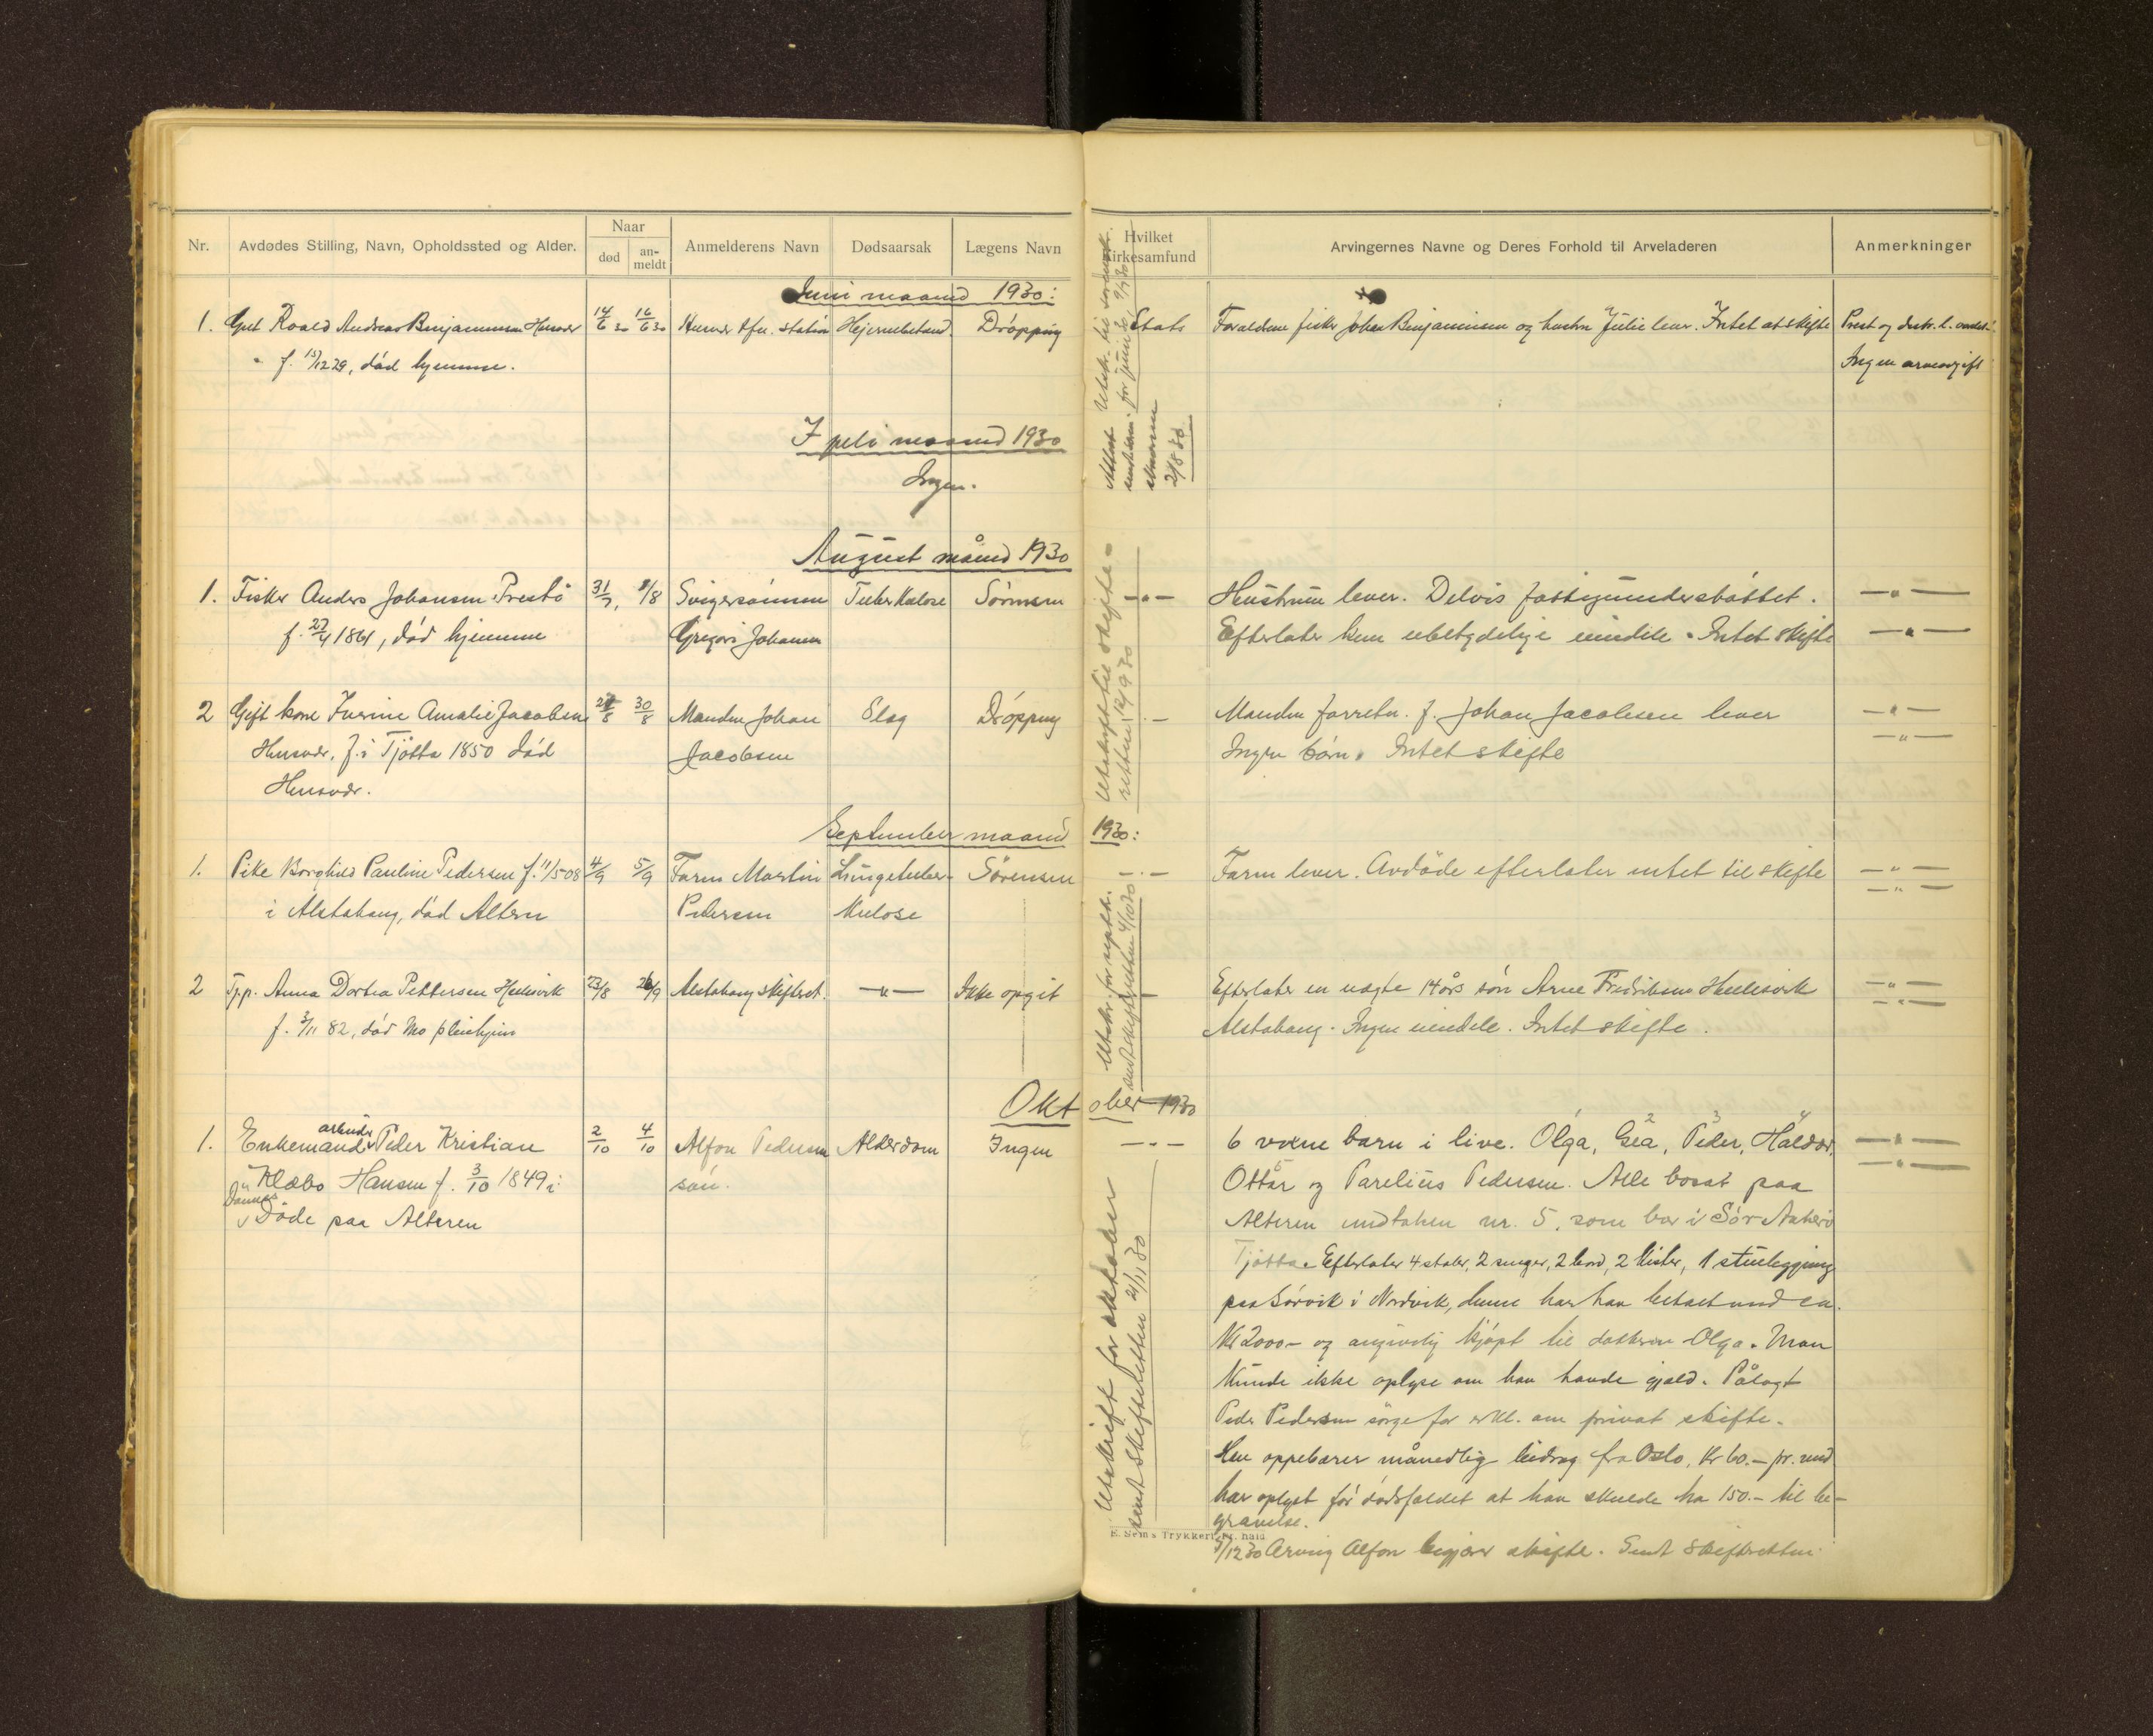 Nr.
Avdødes Stilling, Navn, Opholdssted og Alder.
Naar
død
an-
meldt
Anmelderens Navn
Dødsaarsak
Lægens Navn
Hvilket
Kirkesamfund
Arvingernes Navne og Deres Forhold til Arveladeren
Anmerkninger
Juni maaned 1930:
1. Gut Roald Andreas Benjaminsen Husvær 14/6 30 16/6 30 Husvær tfn. station Hjernebetend. Drøpping Stats Forældrene fisker Johan Benjaminsen og hustru Julie lever. Intet at skifte Prest og distr. l.
f. 15/12 29, död hjemme. Ingen arveavgift
I juli maaned 1930
Ingen.
August måned 1930
1. Fisker Anders Johansen Prestö 31/7, 1/8 Svigersönnen Tuberkulose Sörensen -"- Hustruen lever. Delvis fattigunderstöttet. -"-
f. 27/4 1861, död hjemme Gregori Johansen Efterlater kun ubetydelige eiendele. Intet skifte -"-
2 Gift kone Jusine Amalie Jacobsen 29/8 30/8 Manden Johan Slag Dröpping -"- Manden forretn. f. Johan Jacobsen lever -"-
Husvær, f. i Tjötta 1850 död Jacobsen Ingen börn. Intet skifte -"-
Husvær.
September maaned 1930:
1. Pike Borghild Pauline Pedersen f. 11/5 08 4/9 5/9 Faren Martin Lungetuber- Sörensen -"- Faren lever. Avdöde efterlater intet til skifte -"-
i Alstahaug, död Altern Pedersen kulose -"-
2 Anna Dortea Pettersen Hulesvik 23/8 26/9 Alstahaug skifteret. -"- Ikke opgit - Efterlater en uægte 14 års sön Arne Fredriksen Hulesvik -"-
f. 3/11 82, död Mo pleiehjem Alstahaug. Ingen eiendele. Intet skifte. -"-
Oktober 1930
1. Enkemand arbeider Peder Kristian 2/10 4/10 Alfon Pedersen Alderdom Ingen -"- 6 voxne barn i live. Olga, Gea, Peder, Haldor, -"-
Klæbo Hansen f. 3/10 1849 i sön. Ottar og Parelius Pedersen. Alle bosat paa -"-
Dønnes
Döde paa Alteren Alteren undtaken nr. 5, som bor i Sör
Tjötta. Efterlater 4 stoler, 2 senger, 2 bord, 2 kister, 1 stuebygning
paa Sörvik i Nordvik, denne har han betaet med ca.
Kr 2000- og angivelig kjöpt til datteren Olga. Man
kunde ikke oplyse om han havde gjæld. Pålagt
Peder Pedersen sörge for erkl. om privat skifte.
Han oppebærer månedlig bidrag fra Oslo, Kr 60.- pr. mnd
har oplyst för dödsfaldet at han skulde ha 150.- til be-
gravelse.
5/12 30 Arving Alfon begjærer skifte. Sendt skifteretten
Attest
for juni
2/8 30
Utskrift til skifte-
retten 12/9 30
Utskr. for septbr.
sendt skifteretten 4/10 30
Utskrift for oktober
sendt skifteretten 2/11 30
E. Sem's Trykkeri, Fr.hald